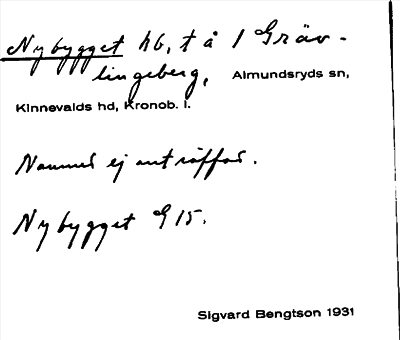 Nybygget hb, t å 1 Gräv-
lingeberg, Almundsryds sn,
Kinnevalds hd, Kronob. l.
Namnet ej anträffad.
Nybygget G 15.
Sigvard Bengtson 1931